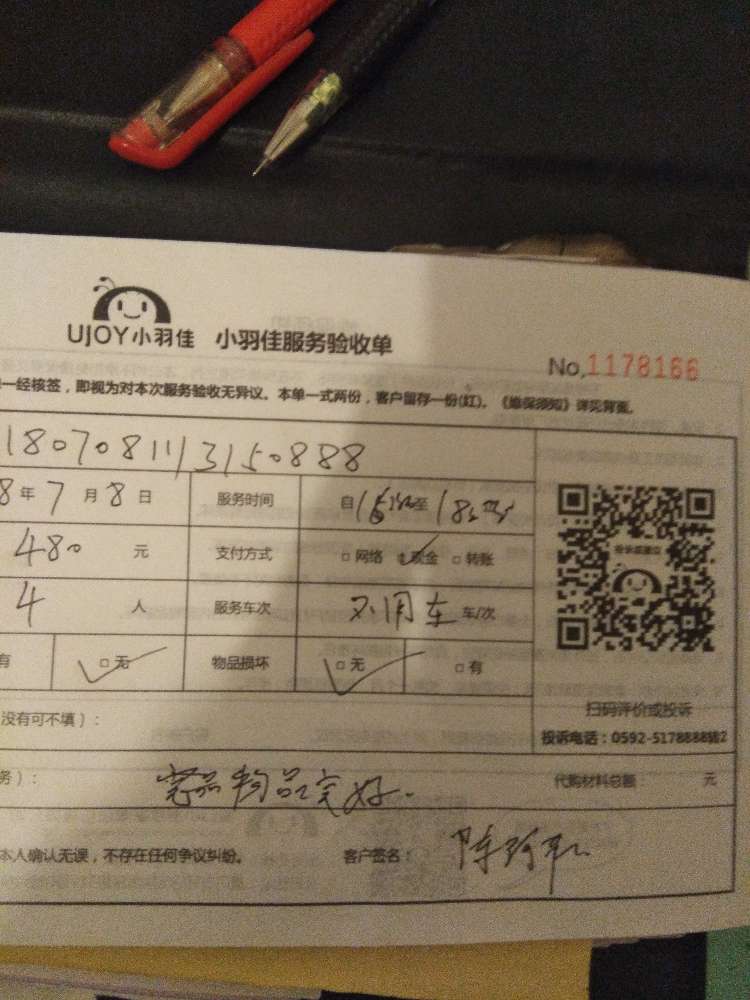 UJOY小羽佳 小羽佳服务验收单
No.1178166
一经核签，即视为对本次服务验收无异议。本单一式两份，客户留存一份(红)。《维保须知》详见背面。
1807081113150888
8年7月8日 服务时间 自 至
480 元 支付方式 □网络 □现金 □转账
4 人 服务车次 不用车 车/次
有 □无 物品损坏 □无 □有
扫码评价或投诉
没有可不填）：
投诉电话：0592-5178888转2
务）： 物品完好. 代购材料总额： 元
本人确认无误，不存在任何争议纠纷。 客户签名： 陈